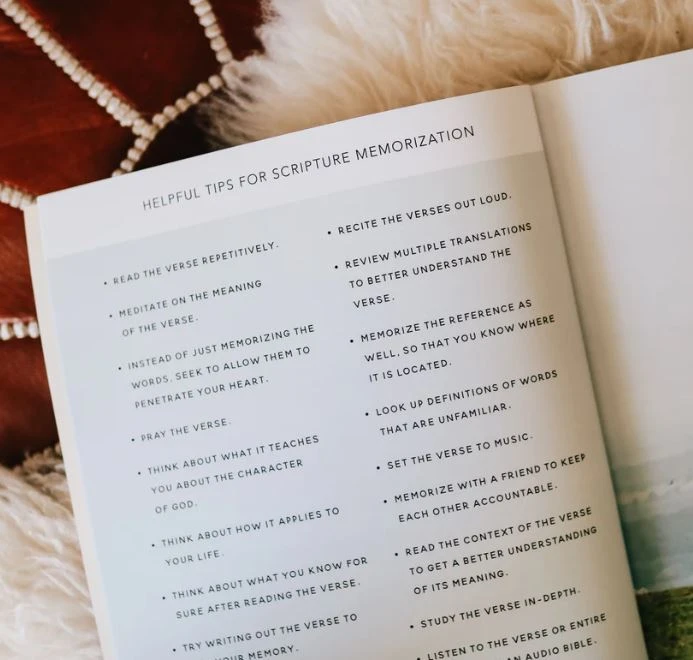 HELPFUL TIPS FOR SCRIPTURE MEMORIZATION
• READ THE VERSE REPETITIVELY.
• MEDITATE ON THE MEANING
OF THE VERSE.
• INSTEAD OF JUST MEMORIZING THE
WORDS, SEEK TO ALLOW THEM TO
PENETRATE YOUR HEART.
• PRAY THE VERSE.
• THINK ABOUT WHAT IT TEACHES
YOU ABOUT THE CHARACTER
OF GOD.
• THINK ABOUT HOW IT APPLIES TO
YOUR LIFE.
• THINK ABOUT WHAT YOU KNOW FOR
SURE AFTER READING THE VERSE.
• TRY WRITING OUT THE VERSE TO
YOUR MEMORY.
• RECITE THE VERSES OUT LOUD.
• REVIEW MULTIPLE TRANSLATIONS
TO BETTER UNDERSTAND THE
VERSE.
• MEMORIZE THE REFERENCE AS
WELL, SO THAT YOU KNOW WHERE
IT IS LOCATED.
• LOOK UP DEFINITIONS OF WORDS
THAT ARE UNFAMILIAR.
• SET THE VERSE TO MUSIC.
• MEMORIZE WITH A FRIEND TO KEEP
EACH OTHER ACCOUNTABLE.
• READ THE CONTEXT OF THE VERSE
TO GET A BETTER UNDERSTANDING
OF ITS MEANING.
• STUDY THE VERSE IN-DEPTH.
• LISTEN TO THE VERSE OR ENTIRE
AN AUDIO BIBLE.